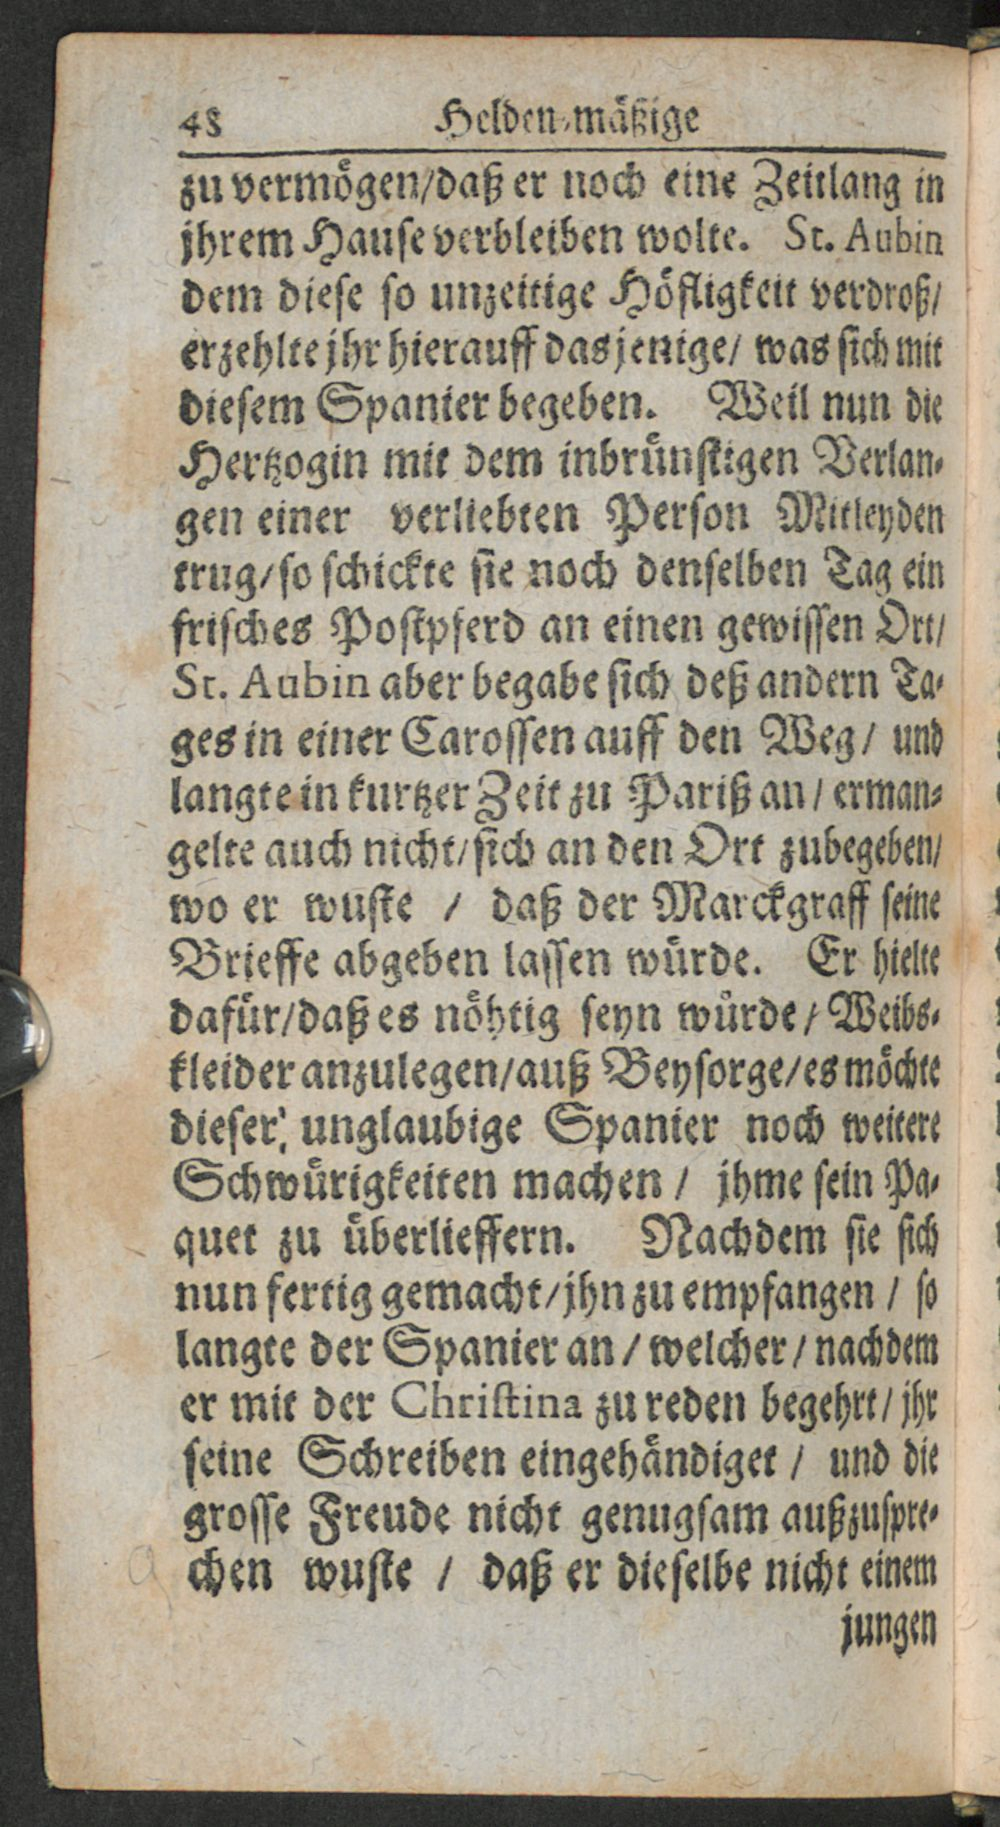 48 Helden-mäßige
zu vermögen/daß er noch eine Zeitlang in
jhrem Hause verbleiben wolte. St. Aubin
dem diese so unzeitige Höfligkeit verdroß/
erzehlte jhr hierauff dasjenige/ was sich mit
diesem Spanier begeben. Weil nun die
Hertzogin mit dem inbrünstigen Verlan-
gen einer verliebten Person Mitleyden
trug/so schickte sie noch denselben Tag ein
frisches Postpferd an einen gewissen Ort/
St. Aubin aber begabe sich deß andern Ta-
ges in einer Carossen auff den Weg/ und
langte in kurtzer Zeit zu Pariß an/ erman-
gelte auch nicht/sich an den Ort zubegeben/
wo er wuste / daß der Marckgraff seine
Brieffe abgeben lassen würde. Er hielte
dafür/daß es nöhtig seyn würde/ Weibs-
kleider anzulegen/auß Beysorge/es möchte
dieser unglaubige Spanier noch weitere
Schwürigkeiten machen / jhme sein Pa-
quet zu überlieffern. Nachdem sie sich
nun fertig gemacht/jhn zu empfangen / so
langte der Spanier an/ welcher/ nachdem
er mit der Christina zu reden begehrt/ jhr
seine Schreiben eingehändiget / und die
grosse Freude nicht genugsam außzuspre-
chen wuste / daß er dieselbe nicht einem
jungen